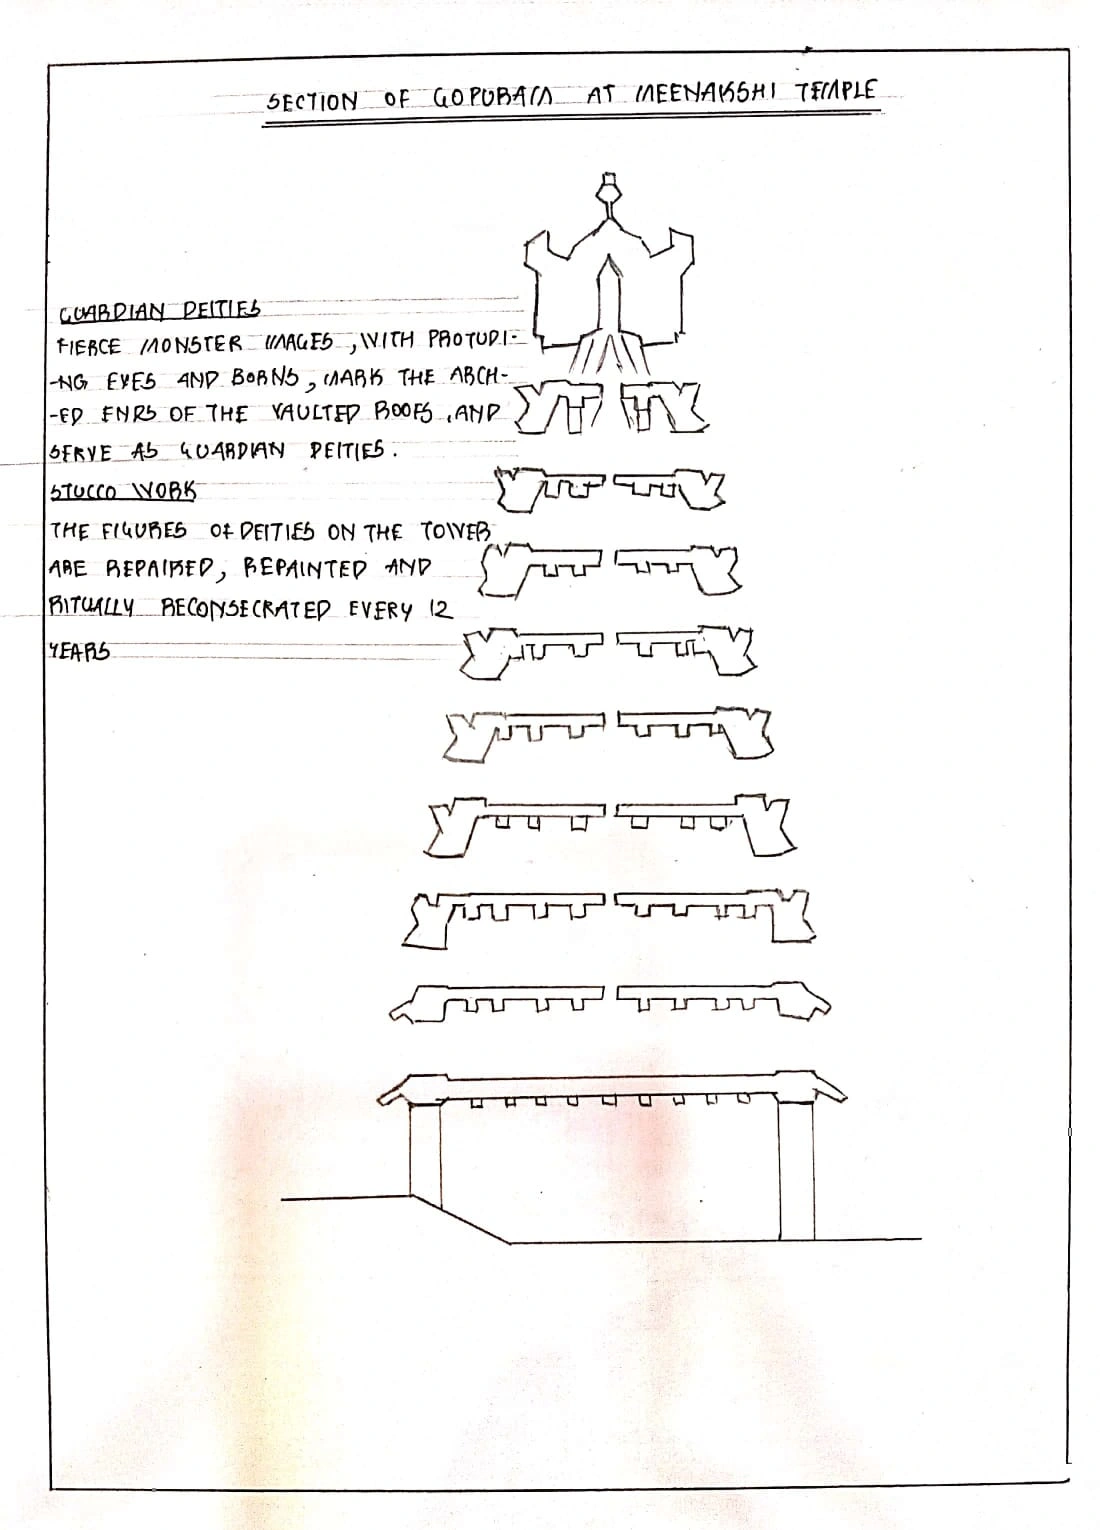 SECTION OF GOPURAM AT MEENAKSHI TEMPLE
GUARDIAN DEITIES
FIERCE MONSTER IMAGES, WITH PROTUDI-
-NG EYES AND HORNS, MARK THE ARCH-
-ED ENRS OF THE VAULTED ROOFS, AND
SERVE AS GUARDIAN DEITIES.
STUCCO WORK
THE FIGURES OF DEITIES ON THE TOWER
ARE REPAIRED, REPAINTED AND
RITUALLY RECONSECRATED EVERY 12
YEARS